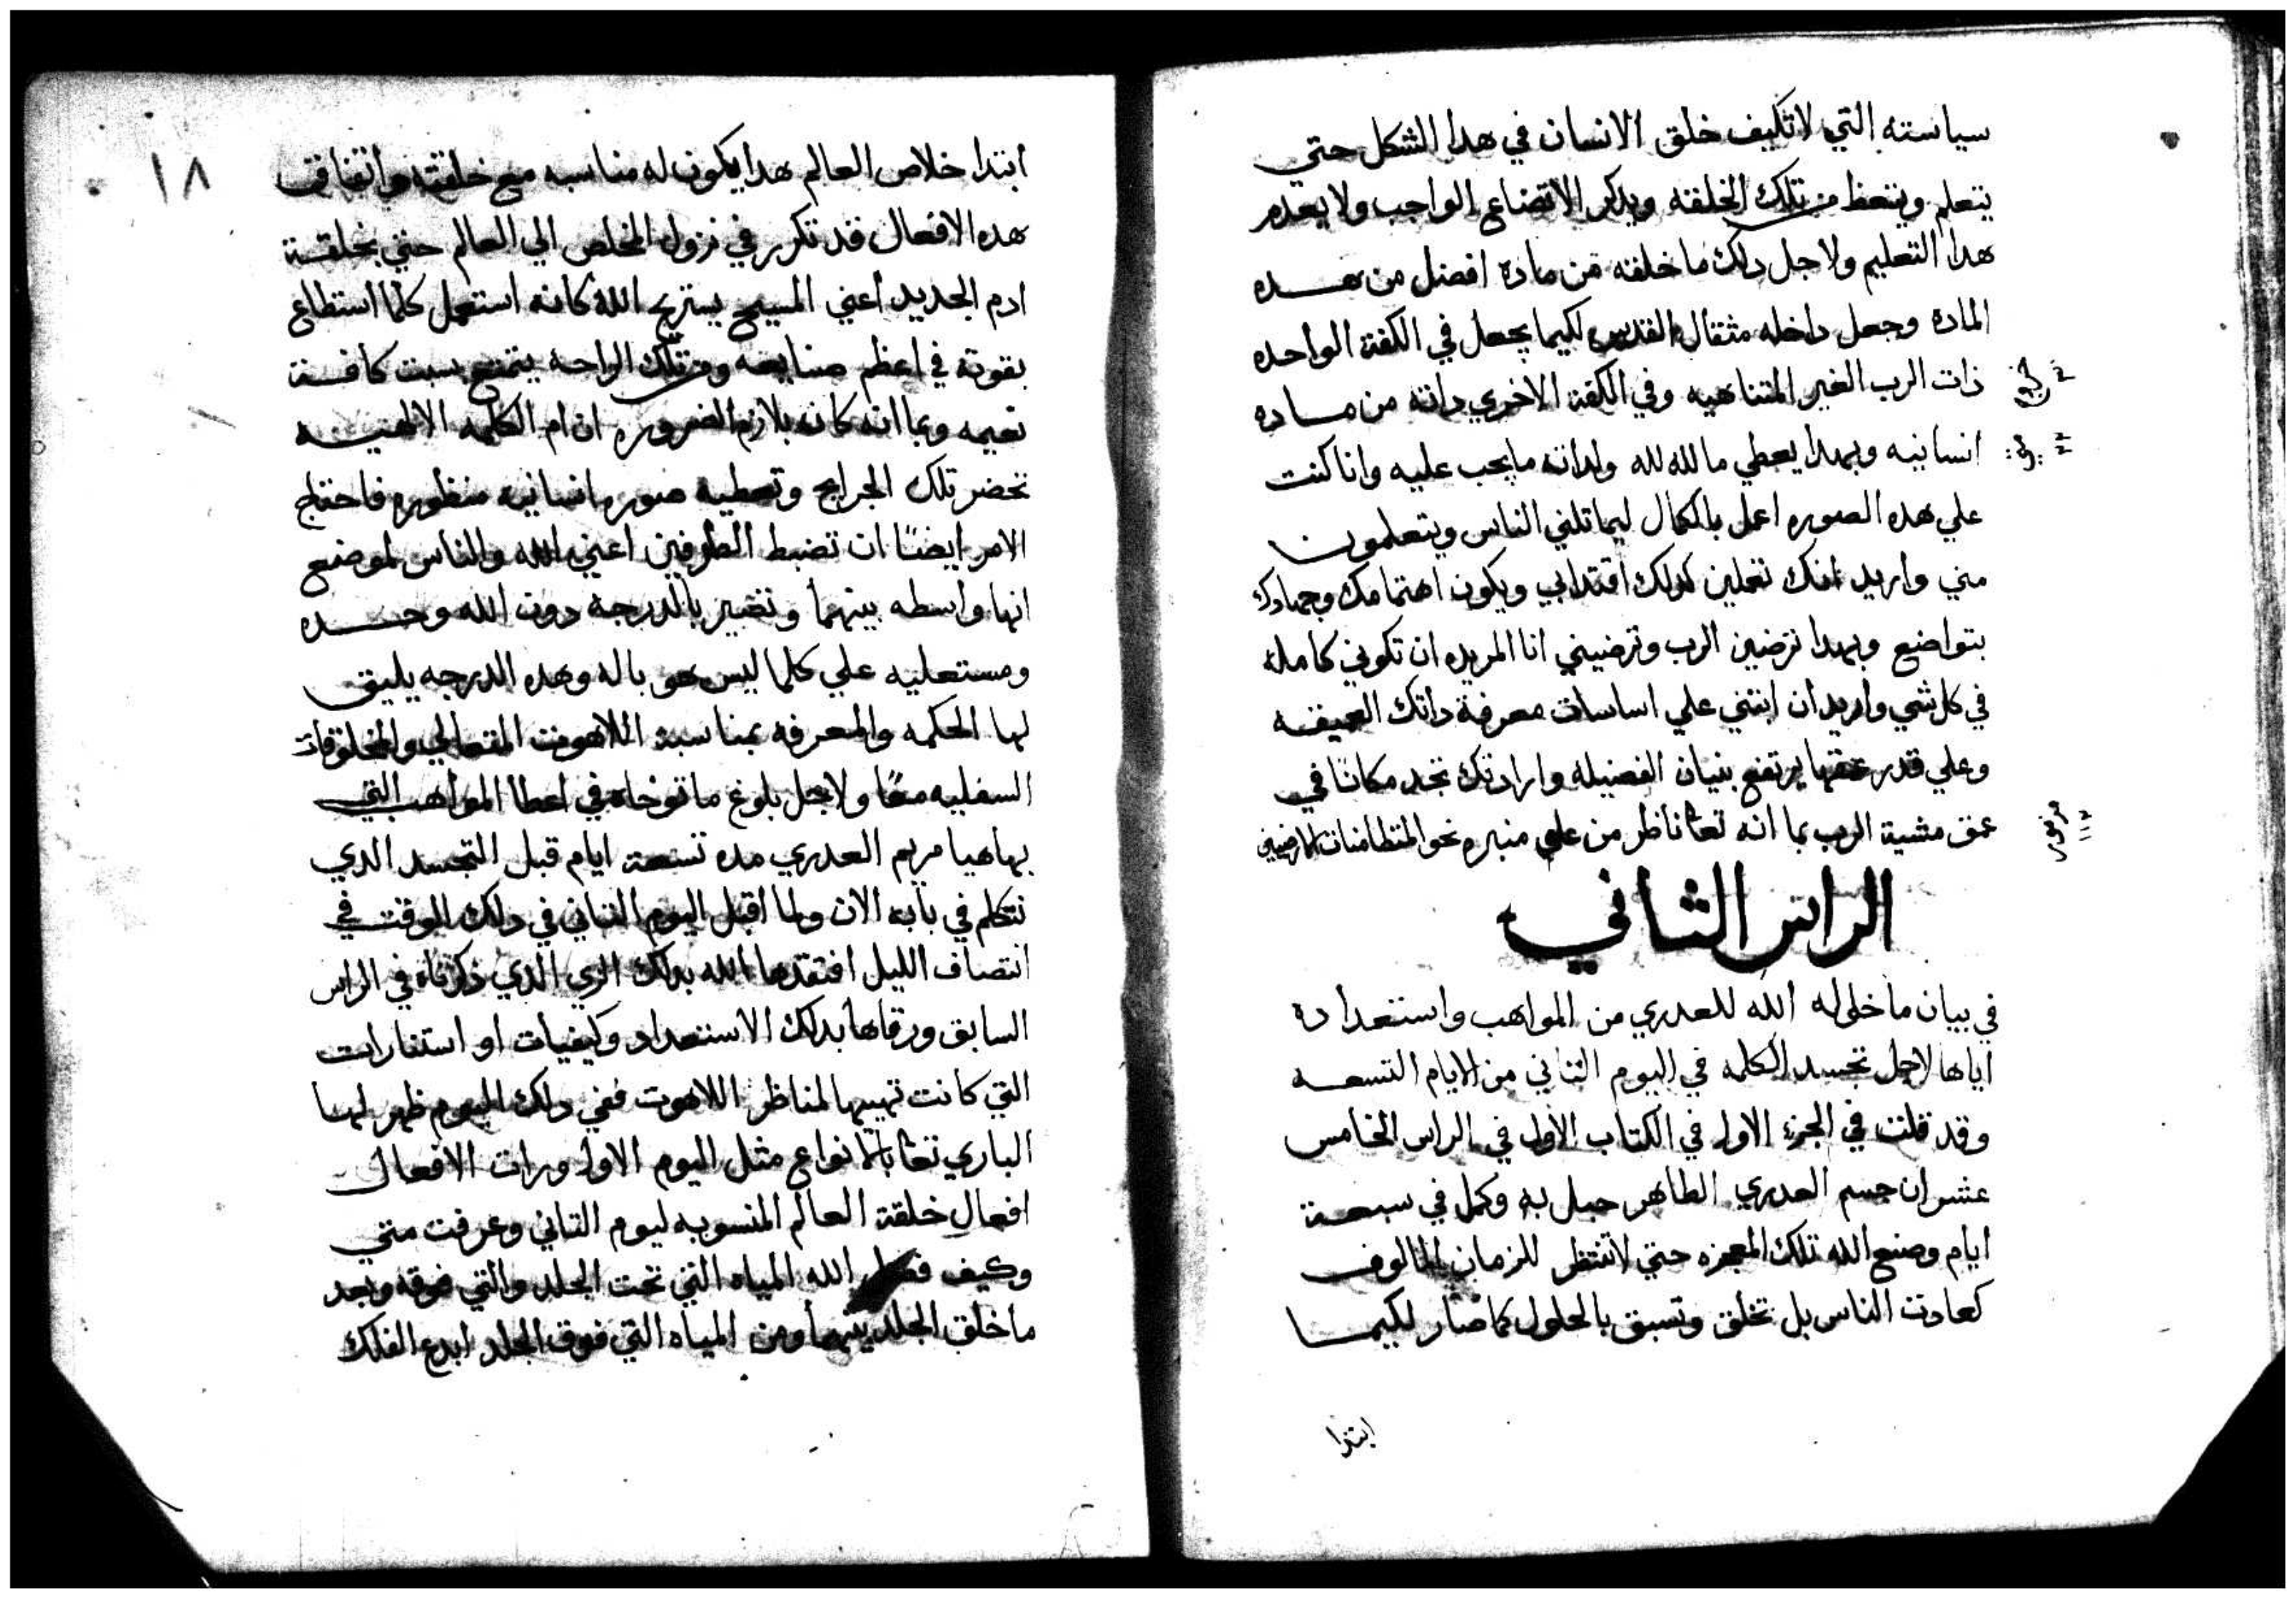 سياسته التي لا تكيف خلق الانسان في هدا الشكل حتي
يتعلم ويتعظ من تلك الخلقه ويدكر الاتضاع الواجب ولا يعدم
هدا التعليم ولاجل دلك ما خلقه من مادة افضل من هده
المادة وجعل داخله مثقال القدس لكيما يجعل في الكفة الواحده
ذات الرب الغير المتناهيه وفي الكفة الاخري داته من ماده
انسانيه وبهدا يعطي ما لله لله ولداته ما يجب عليه وانا كنت
علي هده الصوره اعمل بالكمال ليماتلني الناس ويتعلمون
مني واريد انك تعملين كدلك اقتدا بي ويكون اهتمامك وجهادك
بتواضع وبهدا ترضين الرب وترضيني انا المريده ان تكوني كامله
في كل شي واريد ان ابتني علي اساسات معرفة داتك العميقه
وعلي قدر عمقها يرتفع بنيان الفضيله وارادتك تجد مكانا في
عمق مشية الرب بما انه تعا ناظر من علي منبره نحو المتطامنات الارضيين
الراس الثاني
في بيان ما خوله الله للعدري من المواهب واستعداده
اياها لاجل تجسد الكلمه في اليوم الثاني من الايام التسعه
وقد قلت في الجزء الاول في الكتاب الاول في الراس الخامس
عشر ان جسم العدري الطاهر حبل به وكمل في سبعة
ايام وصنع الله تلك المعجزه حتي لا تنتظر للزمان المالوف
كعادت الناس بل تخلق وتسبق بالحلول كما صار لكيما
ابتدا
١٨
ابتدا خلاص العالم هدا يكون له مناسبه مع خلقته واتفاق
هده الافعال قد تكرر في نزول المخلص الي العالم حتي بخلقة
ادم الجديد اعني المسيح يستريح الله كانه استعمل كلما استطاع
بقوته في اعظم صنايعه ومن تلك الراحه يتمتع بسبت كافة
نعيمه وبما انه كان بلازم الضروره ان ام الكلمه الالهيه
تحضر تلك الجرايح وتعطيه صوره انسانيه منظوره فاحتاج
الامر ايضا ان تضبط الطرفين اعني الله والناس لموضع
انها واسطه بينهما وتصير بالدرجة دون الله وحده
ومستعليه علي كلما ليس هو باله وهده الدرجه يليق
لها الحكمه والمعرفه بمناسبة اللاهوت المتعالي والمخلوقات
السفليه معا ولاجل بلوغ ما توخاه في اعطا المواهب التي
بها هيا مريم العدري مده تسعة ايام قبل التجسد الدي
نتكلم في بابه الان ولما اقبل اليوم الثاني في دلك الوقت في
انتصاف الليل افتقدها الله بدلك الزي الدي ذكرناه في الراس
السابق ورقاها بدلك الاستعداد وكيفيات او استنارات
التي كانت تهييها لمناظر اللاهوت ففي دلك اليوم ظهر لها
الباري تعا بالانواع مثل اليوم الاول ورات الافعال
افعال خلقة العالم المنسوبه ليوم التاني وعرفت متي
وكيف فصل الله المياه التي تحت الجلد والتي فوقه وبعد
ما خلق الجلد بينهما ومن المياه التي فوق الجلد ابدع الفلك